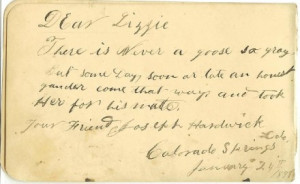 Dear Lizzie
There is Never a goose so gray
but some day, soon or late an honest
gander come that way, and took
Her for his mate.
Your Friend Joseph Hardwick
Colorado Springs
January